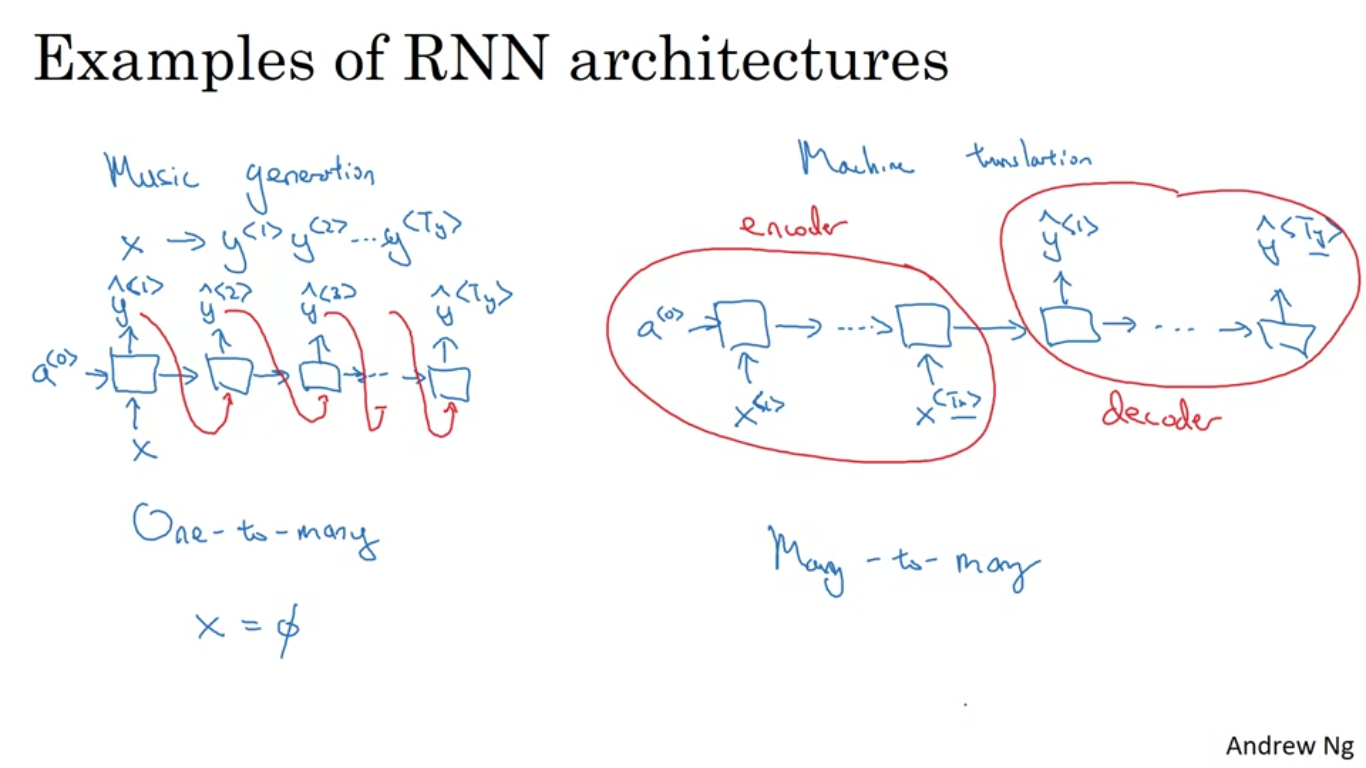 Examples of RNN architectures
Music generation
x → y<1> y<2> ... y<Ty>
ŷ<1> ŷ<2> ŷ<3> ŷ<Ty>
a<0> ...
x
One-to-many
x = ϕ
Machine translation
encoder
ŷ<1> ŷ<Ty>
a<0> .... ...
x<1> x<Tx>
decoder
Many-to-many
Andrew Ng